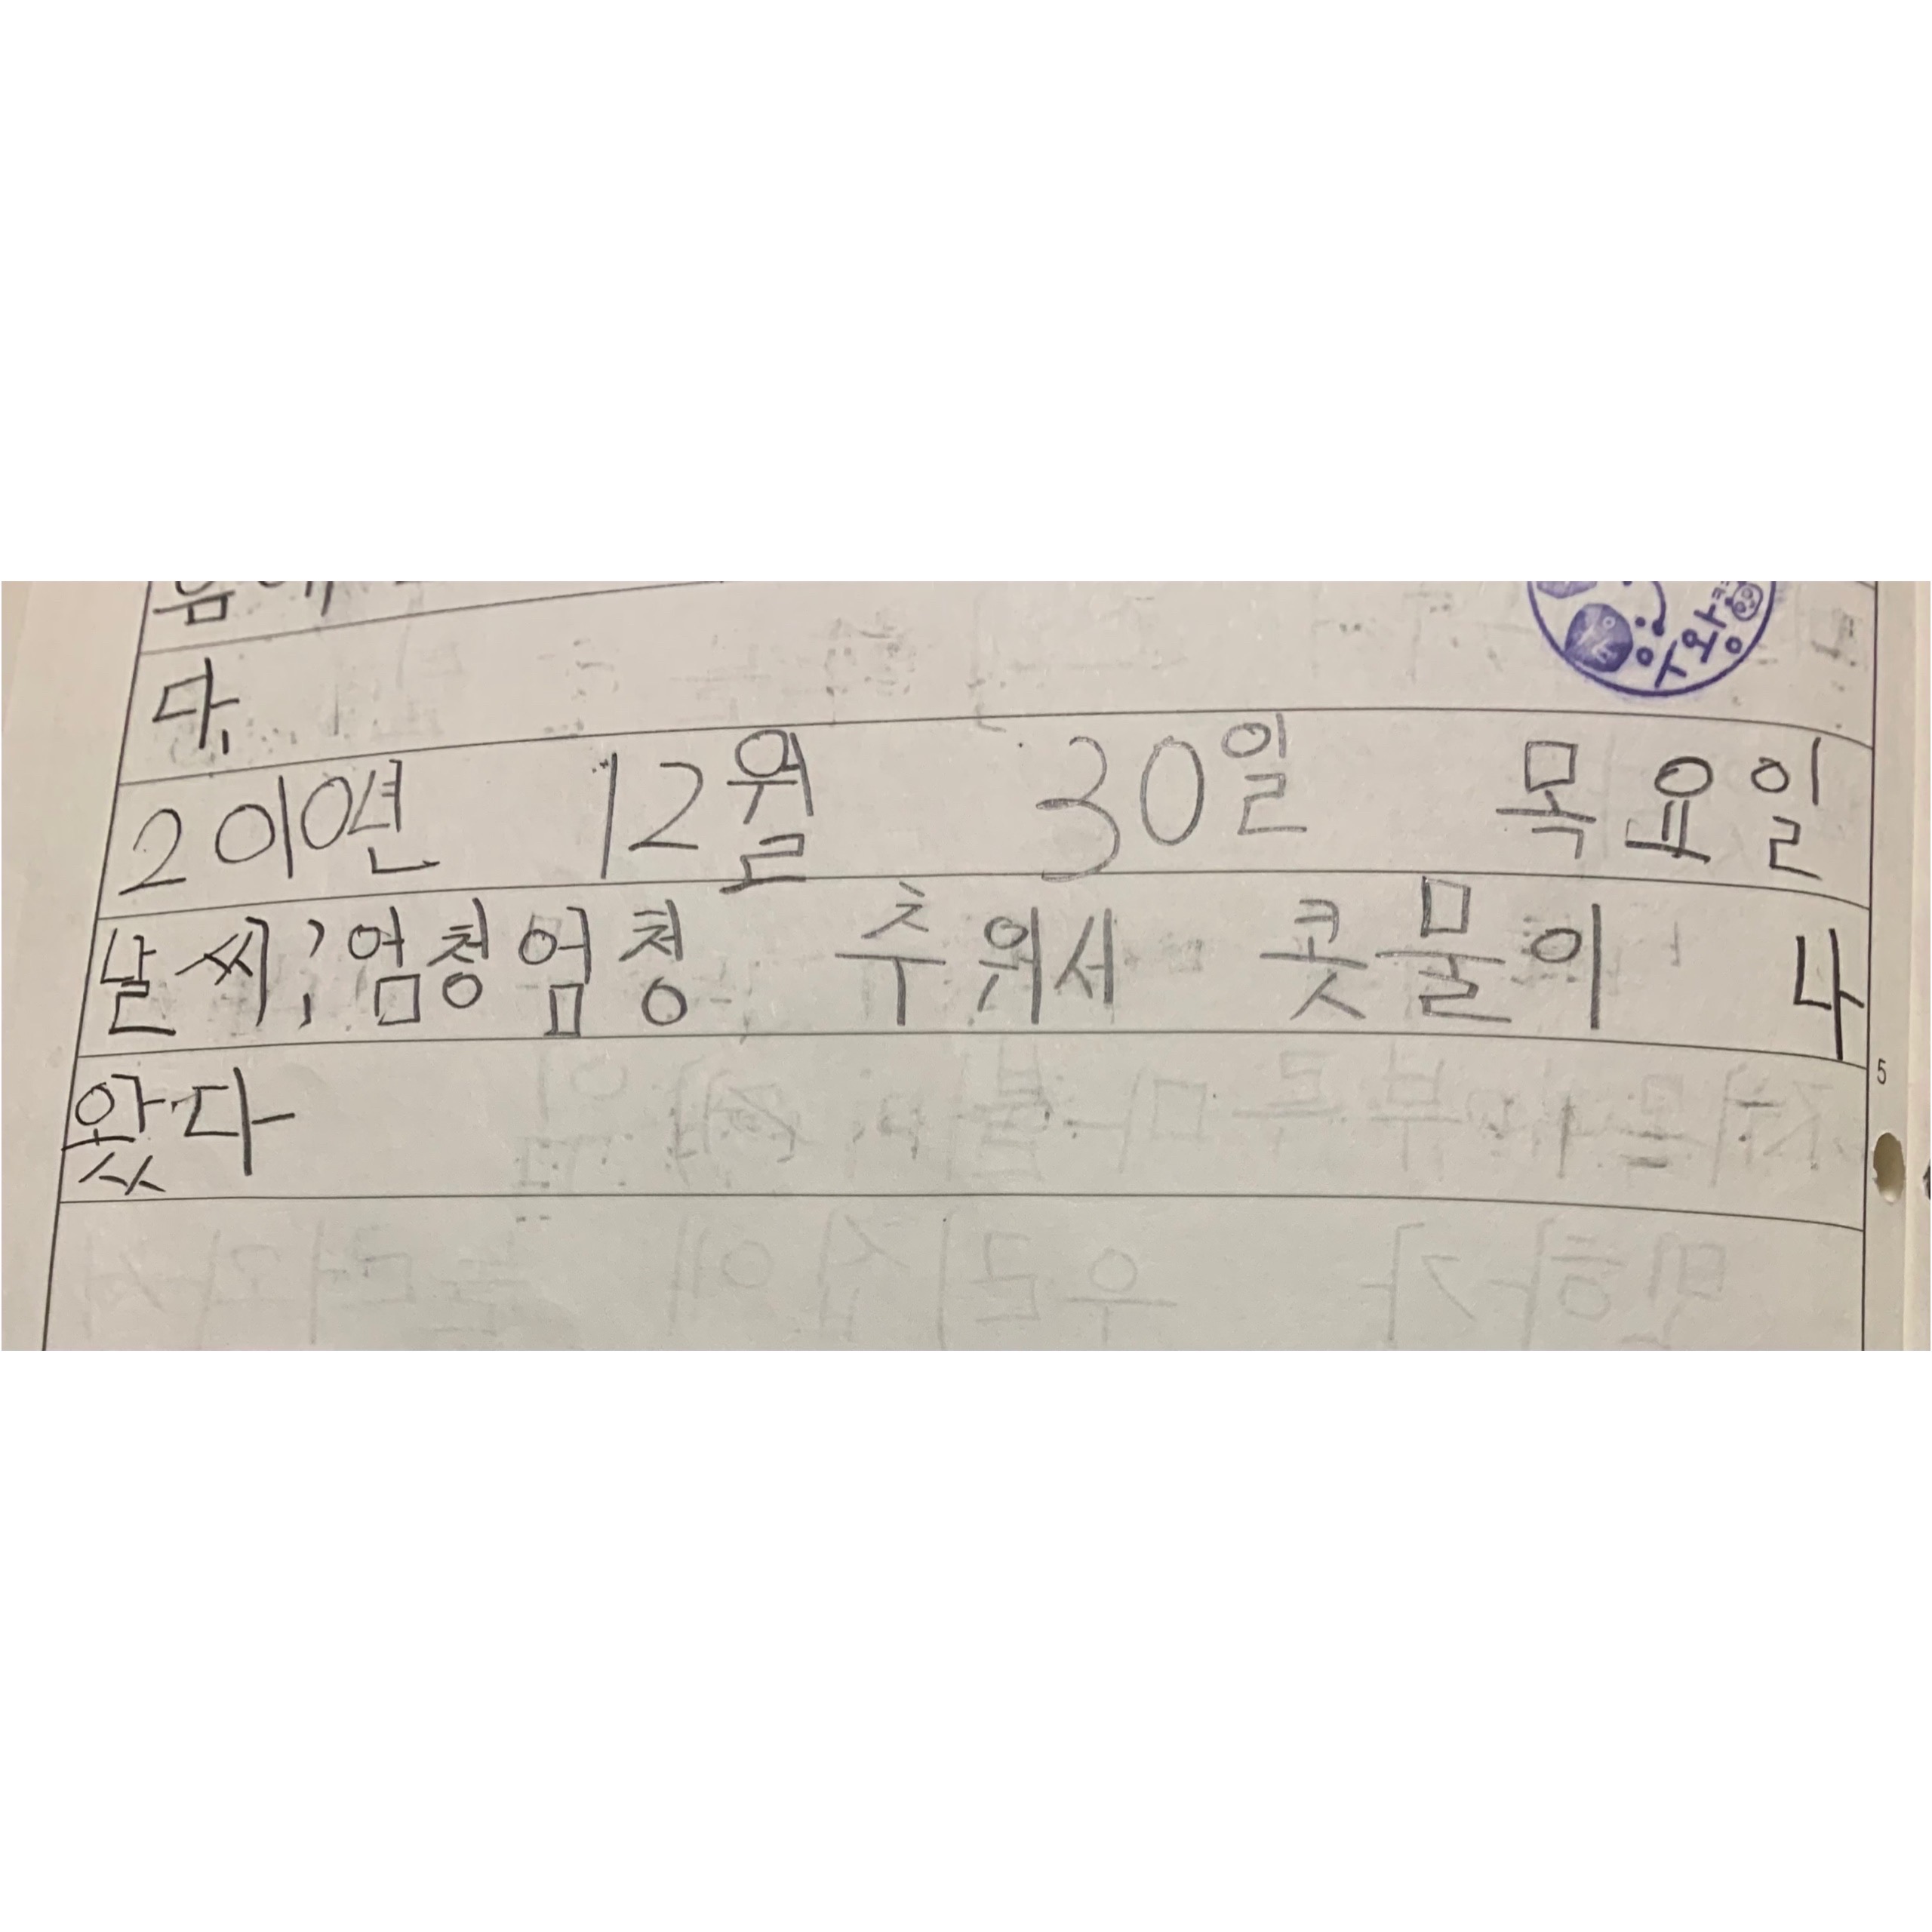 다.
2010년 12월 30일 목요일
날씨; 엄청엄청 추워서 콧물이 나
왔다
5